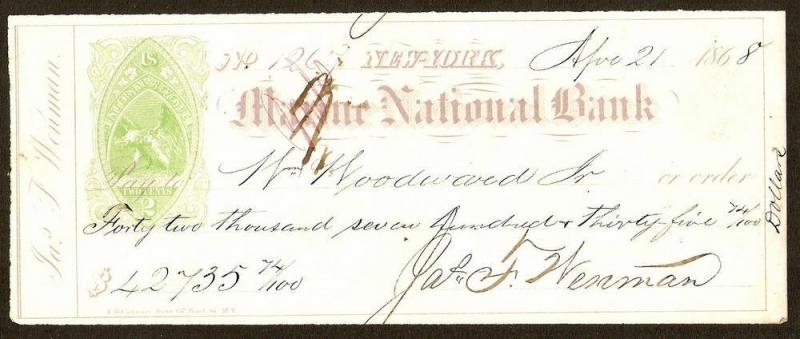 Jas. F. Wenman.
US
INTER. REVENUE
TWO CENTS
2
No. 126 NEW-YORK, Apr 21 1868
Marine National Bank
Pay to Wm Woodward Jr or order
Forty two thousand seven hundred & thirty-five 74/100 Dollars
$ 42735 74/100 Jas. F. Wenman